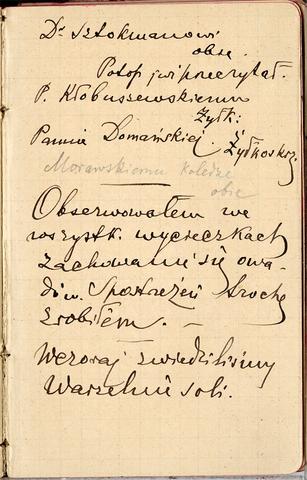 Dr Sztokmanowi
obie
Potop jużprzeczytał.
P. Kłobuszewskiemu
Żytk:
Pannie Domańskiej
i Żydkoskrz.
Morawskiemu koledze
obie
Obserwowałem we
wszystk. wycieczkach
zachowanie się owa-
dów. Spostrzeżeń trochę
zrobiłem. —
Wczoraj zwiedziliśmy
Warzelnię soli.